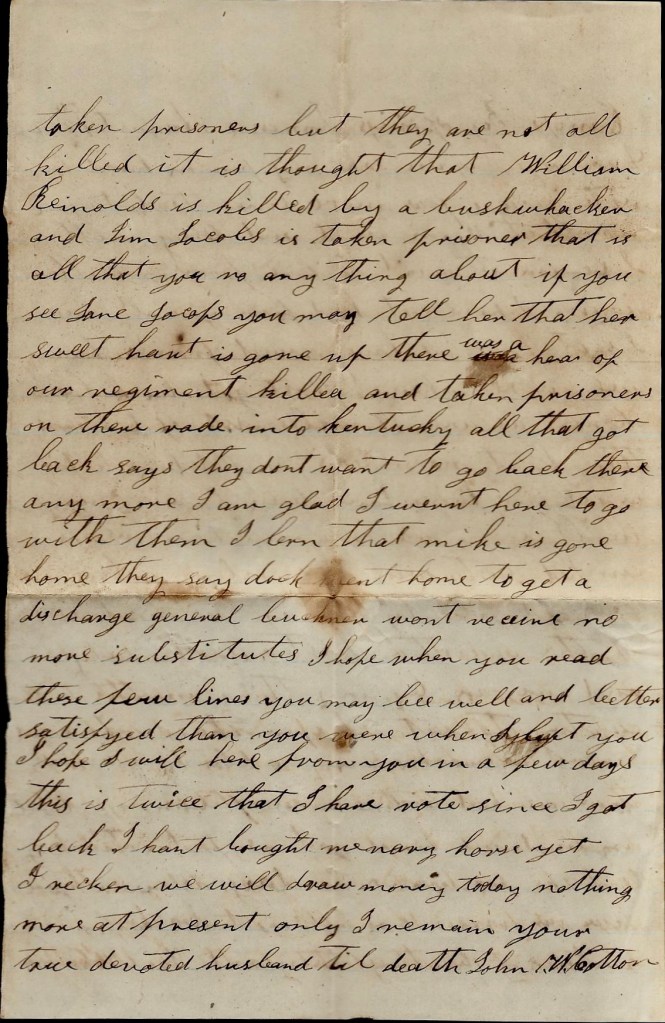 taken prisoners but they are not all
killed it is thought that William
Reinolds is killed by a bushwhacker
and Jim Jacobs is taken prisoner that is
all that you no any thing about if you
see Jane Jacops you may tell her that her
sweet hart is gone up there was a heap of
our regiment killed and taken prisoners
on there rade into kentucky all that got
back says they dont want to go back there
any more I am glad I wernt here to go
with them I lern that mike is gone
home they say dock went home to get a
discharge general buckner wont receive no
more substitutes I hope when you read
these few lines you may bee well and better
satisfyed than you were when I left you
I hope I will here from you in a few days
this is twice that I have rote since I got
back I hant bought me nary horse yet
I recken we will draw money today nothing
more at present only I remain your
true devoted husband til death John W Cotton